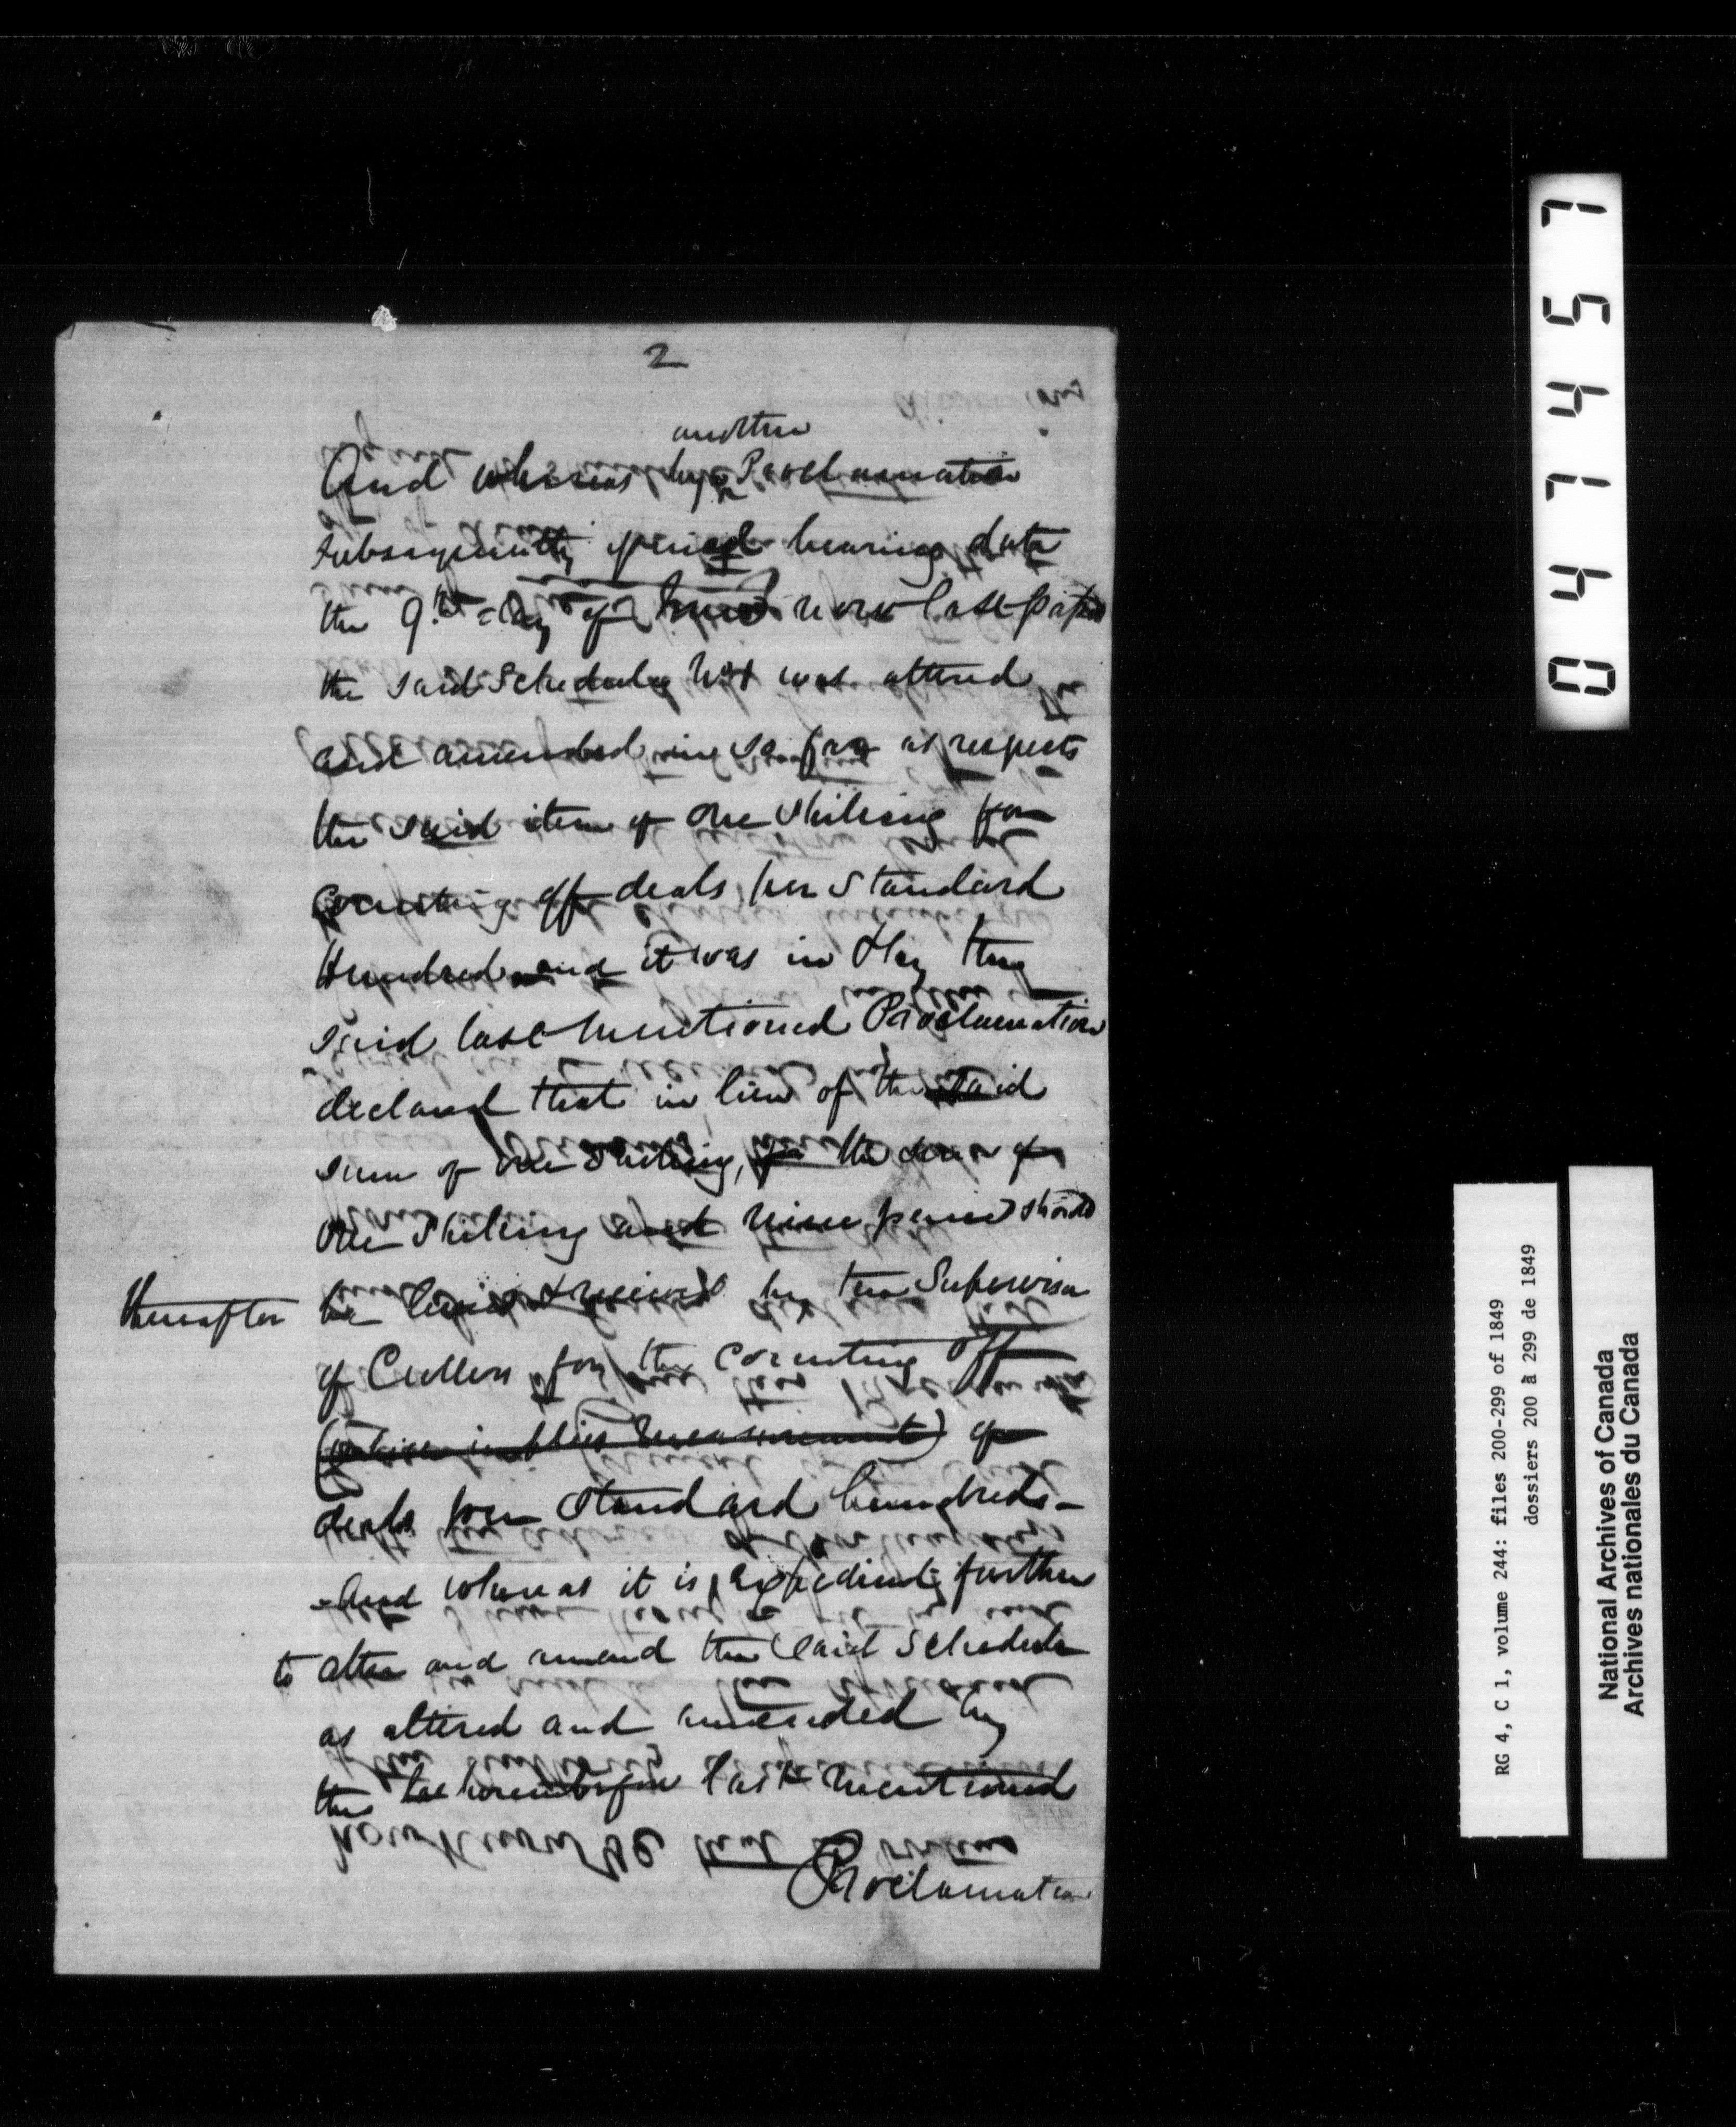 2
another
And whereas by a Proclamation
subsequently issued bearing date
the 9th day of June now last past
the said Schedule No 1 was altered
and amended in so far as respects
the said item of One Shilling for
Counting off deals per Standard
Hundred and it was in & by the
said last mentioned Proclamation
declared that in lieu of the said
sum of One Shilling, the sum of
One Shilling and nine pence should
thereafter be levied & received by the Supervisor
of Cullers for the Counting off
(which implies measurement) of
deals per Standard hundred-
And whereas it is expedient further
to alter and amend the said Schedule
as altered and amended by
the hereinbefore last mentioned
Proclamation
047457
RG 4, C 1, volume 244: files 200-299 of 1849
dossiers 200 à 299 de 1849
National Archives of Canada
Archives nationales du Canada